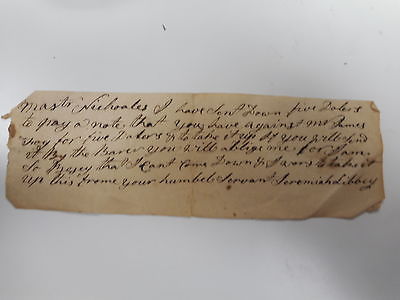 Mastr Nichoales I have Sent Down five Dolers
to pay a note that you have against Mr James
for five Dolers & to take it up If you will Send
it By the barer you will oblige me for I am
So Bussey that I Cant Come Down & I want to take it
up this frome your humbel Servant Jeremiah Libbey